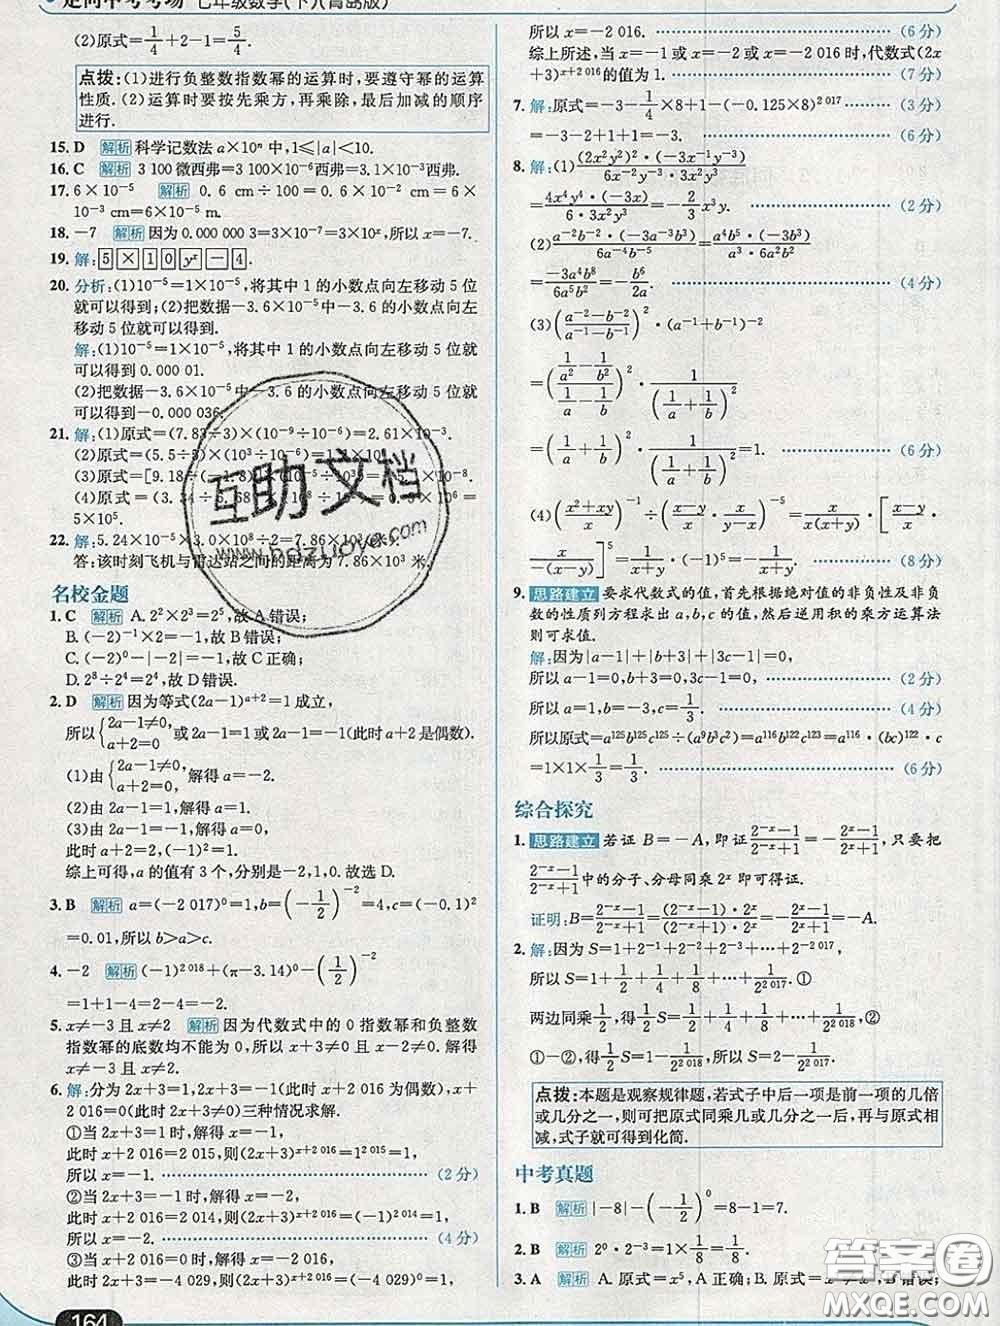 走向中考考场 七年级数学(下)(青岛版)
(2)原式=1/4+2-1=5/4.
点拨:(1)进行负整数指数幂的运算时,要遵守幂的运算
性质.(2)运算时要按先乘方,再乘除,最后加减的顺序
进行.
15. D 解析 科学记数法 a×10ⁿ 中,1≤|a|<10.
16. C 解析 3 100微西弗=3 100×10⁻⁶西弗=3.1×10⁻³西弗.
17. 6×10⁻⁵ 解析 0.6 cm÷100=0.6×10⁻² cm=6×
10⁻³ cm=6×10⁻⁵ m.
18. -7 解析 因为0.000 000 3=3×10⁻⁷=3×10ˣ,所以x=-7.
19. 解: 5 × 1 0 yˣ - 4 .
20. 分析:(1)10⁻⁵=1×10⁻⁵,将其中1的小数点向左移动5位
就可以得到;(2)把数据-3.6×10⁻⁵中-3.6的小数点向左
移动5位就可以得到.
解:(1)10⁻⁵=1×10⁻⁵,将其中1的小数点向左移动5位就
可以得到0.000 01.
(2)把数据-3.6×10⁻⁵中-3.6的小数点向左移动5位就
可以得到-0.000 036.
21. 解:(1)原式=(7.83÷3)×(10⁻⁹÷10⁻⁶)=2.61×10⁻³.
(2)原式=(5.5÷5)×(10³÷10⁻²)=
(3)原式=[9.18÷(-1.8)]
(4)原式=(3.
5×10⁵.
22. 解:5.24×10⁻⁵×3.0×10⁸÷2=7.86×10³
答:该时刻飞机与雷达站之间的距离为7.86×10³米.
名校金题
1. C 解析 A.2²×2³=2⁵,故A错误;
B.(-2)⁻¹×2=-1,故B错误;
C.(-2)⁰-|-2|=-1,故C正确;
D.2⁸÷2⁴=2⁴,故D错误.
2. D 解析 因为等式(2a-1)ᵃ⁺²=1成立,
所以{2a-1≠0, a+2=0 或2a-1=1或2a-1=-1(此时a+2是偶数).
(1)由{2a-1≠0, a+2=0, 解得a=-2.
(2)由2a-1=1,解得a=1.
(3)由2a-1=-1,解得a=0,
此时a+2=2,(-1)²=1.
综上可得,a的值有3个,分别是-2,1,0.故选D.
3. B 解析 a=(-2 017)⁰=1,b=(-1/2)⁻²=4,c=(-0.1)²
=0.01,所以b>a>c.
4. -2 解析 (-1)²⁰¹⁸+(π-3.14)⁰-(1/2)⁻²
=1+1-4=2-4=-2.
5. x≠-3且x≠2 解析 因为代数式中的0指数幂和负整数
指数幂的底数均不能为0,所以x+3≠0且x-2≠0.解得
x≠-3且x≠2.
6. 解:分为2x+3=1,2x+3=-1(此时x+2 016为偶数),x+
2 016=0(此时2x+3≠0)三种情况求解.
①当2x+3=1时,解得x=-1,
此时x+2 016=2 015,则(2x+3)ˣ⁺²⁰¹⁶=1²⁰¹⁵=1,
所以x=-1. (2分)
②当2x+3=-1时,解得x=-2,
此时x+2 016=2 014,则(2x+3)ˣ⁺²⁰¹⁶=(-1)²⁰¹⁴=1,
所以x=-2. (4分)
③当x+2 016=0时,解得x=-2 016,
此时2x+3=-4 029,则(2x+3)ˣ⁺²⁰¹⁶=(-4 029)⁰=1,
164
所以x=-2 016. (6分)
综上所述,当x=-1或x=-2或x=-2 016时,代数式(2x
+3)ˣ⁺²⁰¹⁶的值为1. (7分)
7. 解:原式=-3-1/4×8+1-(-0.125×8)²⁰¹⁷ (3分)
=-3-2+1+1=-3. (6分)
8. 解:(1)(2x²y²)²·(-3x⁻¹y⁻³)/(6x⁻²x²y³)
=4x⁴y⁴·(-3x)/(6·x²y³y³)=-2/3x³y. (2分)
(2)a⁻²b⁻²·(-3a⁻³b³)/(6a⁻⁴b⁻⁵)=a⁴b⁵·(-3b³)/(a³·6a²b²)
=-3a⁴b⁸/(6a⁵b²)=-b⁶/(2a). (4分)
(3)((a⁻²-b⁻²)/(a⁻¹-b⁻¹))²·(a⁻¹+b⁻¹)⁻²
=((1/a²-1/b²)/(1/a-1/b))²·1/(1/a+1/b)²
=(1/a+1/b)²·1/(1/a+1/b)²=1. (6分)
(4)((x²+xy)/x)⁻¹÷((x-y)/x·x/(y-x))⁻⁵=x/(x(x+y))·[(x-y)/x·
x/(-(x-y))]⁵=1/(x+y)·(-1)⁵=-1/(x+y). (8分)
9. 思路建立 要求代数式的值,首先根据绝对值的非负性及非负
数的性质列方程求出a,b,c的值,然后逆用积的乘方运算法
则可求值.
解:因为|a-1|+|b+3|+|3c-1|=0,
所以a-1=0,b+3=0,3c-1=0. (2分)
所以a=1,b=-3,c=1/3. (4分)
所以原式=a¹²⁵b¹²⁵c¹²⁵÷(a⁹b³c²)=a¹¹⁶b¹²²c¹²³=a¹¹⁶·(bc)¹²²·c
=1×1×1/3=1/3. (6分)
综合探究
1. 思路建立 若证B=-A,即证(2⁻ˣ-1)/(2⁻ˣ+1)=-(2ˣ-1)/(2ˣ+1),只要把
(2⁻ˣ-1)/(2⁻ˣ+1)中的分子、分母同乘2ˣ即可得证.
证明:B=(2⁻ˣ-1)/(2⁻ˣ+1)=(2⁻ˣ-1)·2ˣ/((2⁻ˣ+1)·2ˣ)=-(2ˣ-1)/(2ˣ+1)=-A.
2. 解:因为S=1+2⁻¹+2⁻²+2⁻³+…+2⁻²⁰¹⁷,
所以S=1+1/2+1/4+1/8+…+1/2²⁰¹⁷,①
两边同乘1/2,得1/2S=1/2+1/4+1/8+…+1/2²⁰¹⁸,②
①-②,得1/2S=1-1/2²⁰¹⁸,所以S=2-1/2²⁰¹⁷.
点拨:本题是观察规律题,若式子中后一项是前一项的几倍
或几分之一,则可把原式同乘几或几分之一后,再与原式相
减,式子就可得到化简.
中考真题
1. B 解析 |-8|-(-1/2)⁰=8-1=7.
2. B 解析 2⁰·2⁻³=1×1/8=1/8.
3. A 解析 A.原式=x⁵,A正确;B.原式=x⁶≠x⁵,B错误;
互助文档
www.hdzuoye.com
答案圈
MXQE.COM